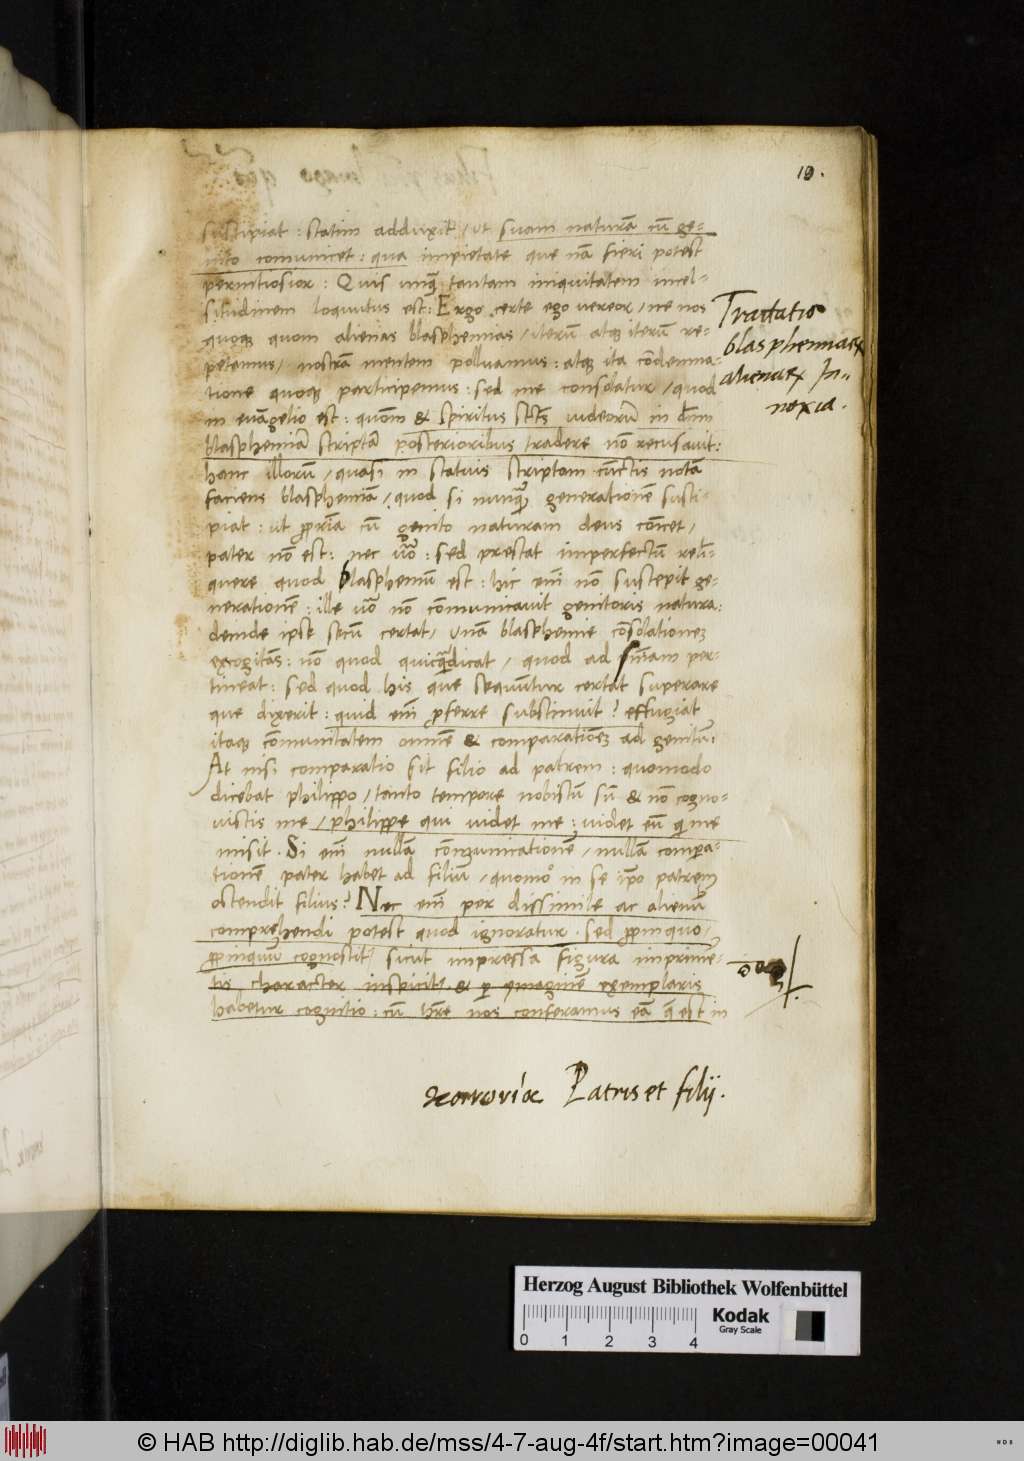 10.
suscipiat : statim adduxit / ut suam naturā cū ge-
nito comunicet : qua impietate que nā fieri potest
pernitiosior : Quis unq̄ tantam iniquitatem in cel-
situdinem loquutus est : Ergo certe ego vereor / ne nos
quoqȝ quom alienas blasphemias / iterū atqȝ iterū re-
petamus / nostrā mentem polluamus : atqȝ ita cōdemna-
tione quoqȝ participemus : sed me consolatur / quod
in evāgelio est : quom & spiritus iudeorū in dn̄m
blasphemiā scriptā posterioribus tradere nō recusavit :
hanc illorū / quasi in statuis scriptam cūctis notā
faciens blasphemiā / quod si nunquā generationē susci-
piat : ut p̄priā cū genito naturam deus cōicet /
pater nō est : nec vō : sed prestat imperfectū reli-
quere quod blasphemū est : hic eni nō suscepit ge-
nerationē : ille vō nō cōmunicavit genitoris natura :
deinde ipse secū certat / unā blasphemie cōsolationeȝ
excogitās : nō quod quicquā dicat / quod ad per-
tineat : sed quod his que sequūtur certat superare
que dixerit : quid eni p̄ferre substinuit ? effugiat
itaqȝ cōmunitatem omnē & comparationeȝ ad genitū :
At nisi comparatio sit filio ad patrem : quomodo
dicebat philippo / tanto tempore nobiscū sū & nō cogno-
vistis me / philippe qui videt me : videt eū qui me
misit . Si eni nullā cōmunicationē / nullā compara-
tionē pater habet ad filiū / quomō in se ip̄o patrem
ostendit filius ? Nec eni per dissimile ac alienū
comprehendi potest quod ignoratur . sed p̄pinquo /
p̄pinquū cognoscit / sicut impressa figura imprimē-
tis character inspicit̄ & p ymaginē exemplaris
habetur cognitio : cū hr̄e nos conferamus eā q̄ est in
Tractatio
blasphemiaeȝ
alienaeȝ In-
noxia .
κοινωνία Patris et filij .
Herzog August Bibliothek Wolfenbüttel
0 1 2 3 4
Kodak
Gray Scale
© HAB http://diglib.hab.de/mss/4-7-aug-4f/start.htm?image=00041